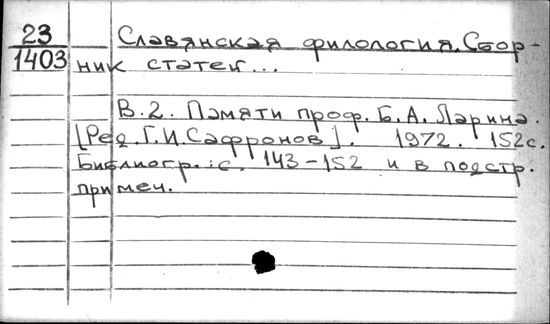 23
1403
Славянская филология. Сбор-
ник статей...
В.2. Памяти проф. Б.А. Ларина.
[Ред. Г.И. Сафронов]. 1972. 152с.
Библиогр.: с. 143-152 и в подстр.
примеч.